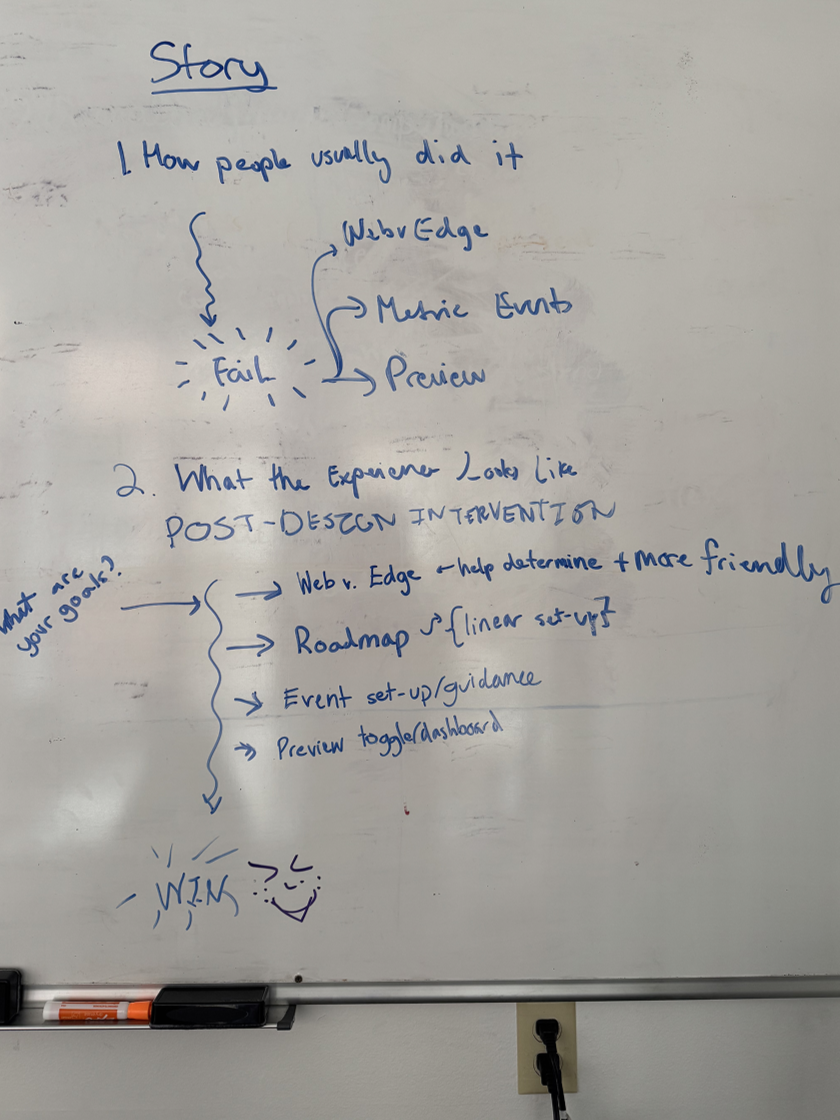 Story
1. How people usually did it
Web v Edge
Metric Events
Fail
Preview
2. What the Experience Looks Like
POST-DESIGN INTERVENTION
What are
your goals?
Web v. Edge ← help determine + more friendly
Roadmap {linear set-up}
Event set-up/guidance
Preview toggle/dashboard
WIN